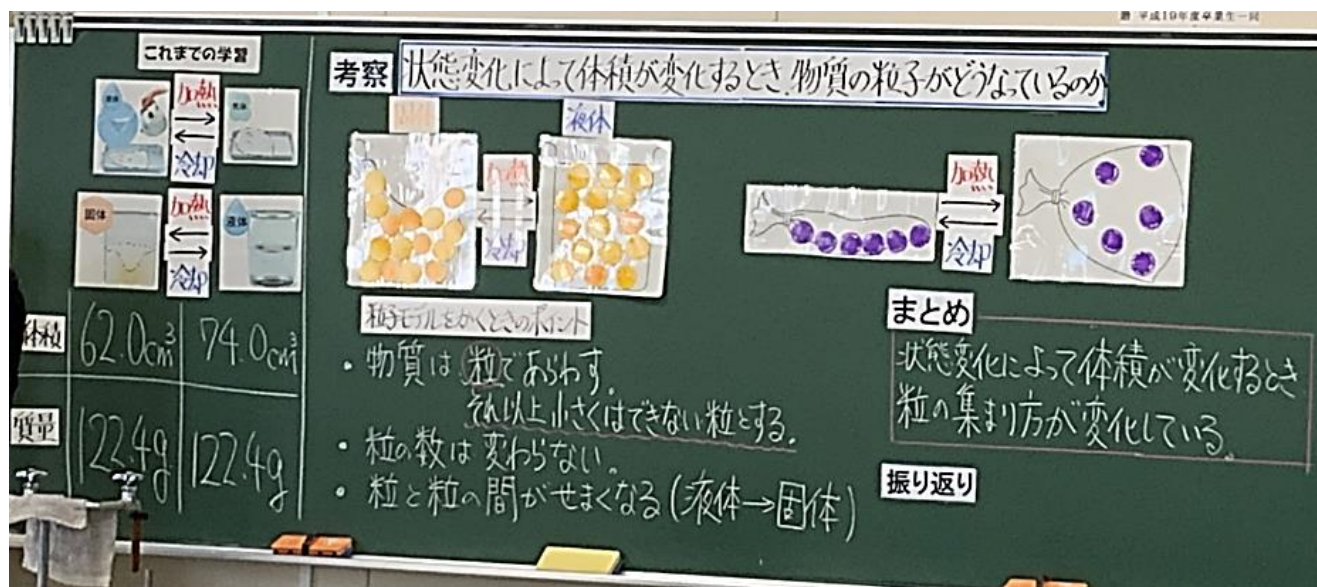 贈 平成19年度卒業生一同
これまでの学習
加熱
冷却
固体
加熱
冷却
液体
体積
62.0cm³
74.0cm³
質量
122.4g
122.4g
考察
状態変化によって体積が変化するとき、物質の粒子がどうなっているのか
液体
加熱
冷却
加熱
冷却
粒子モデルをかくときのポイント
・物質は粒であらわす。
それ以上小さくはできない粒とする。
・粒の数は変わらない。
・粒と粒の間がせまくなる(液体→固体)
まとめ
状態変化によって体積が変化するとき
粒の集まり方が変化している。
振り返り